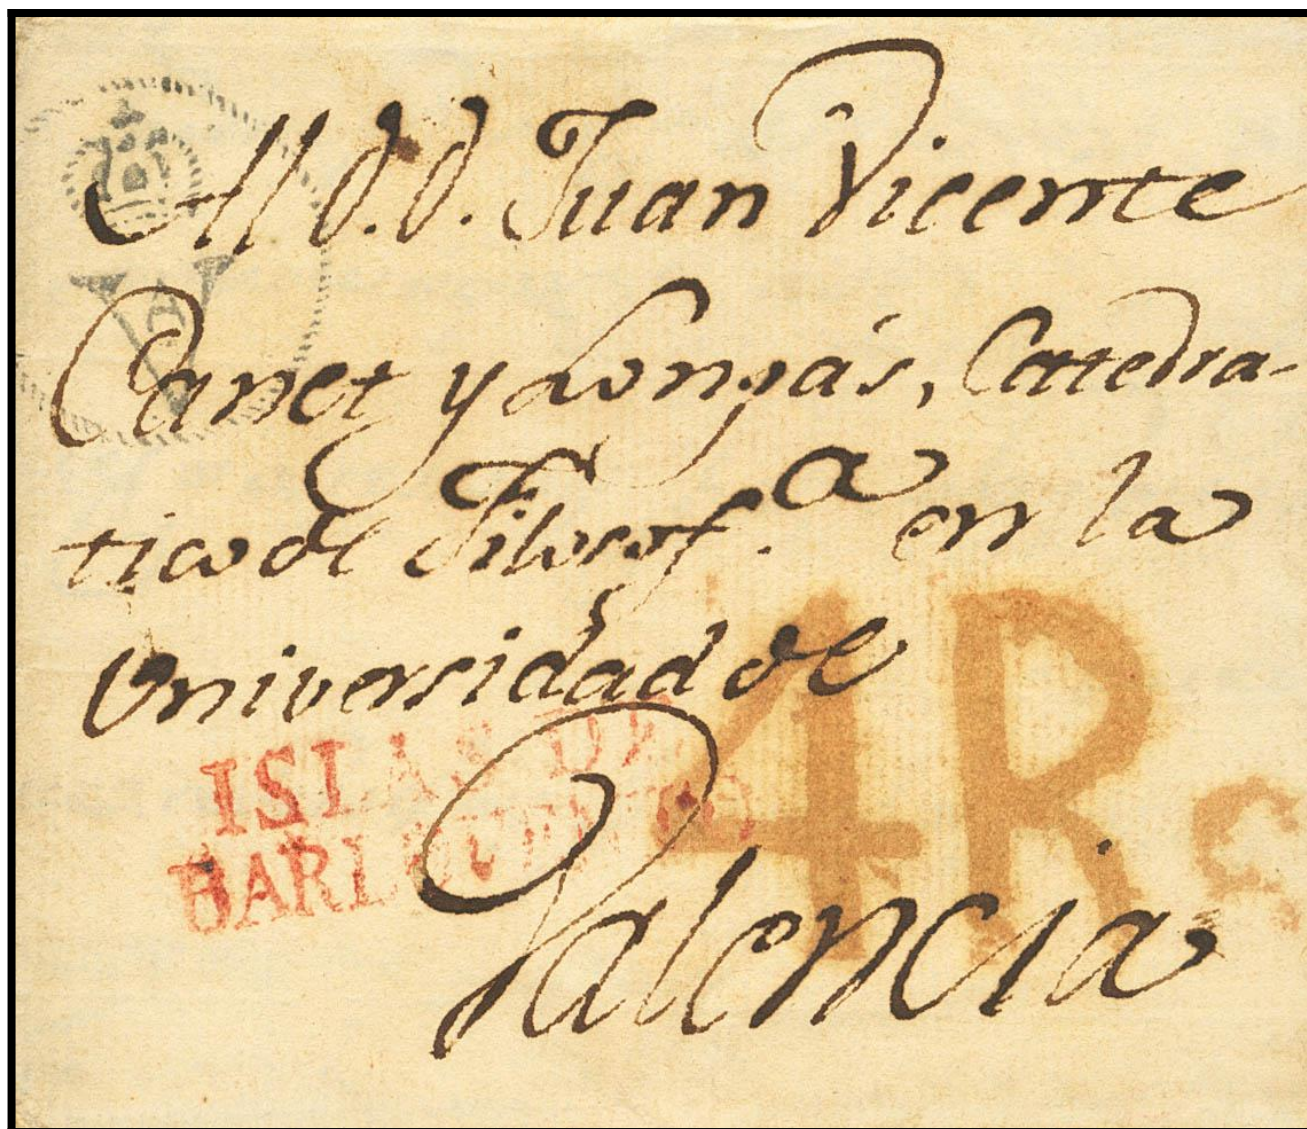 Al D.ᵈ. Juan Vicente
Carret y Lonpás, Catedra-
tico de Filosof.ª en la
Universidad de
ISLAS DE
BARLOVENTO
4Rs
Valencia